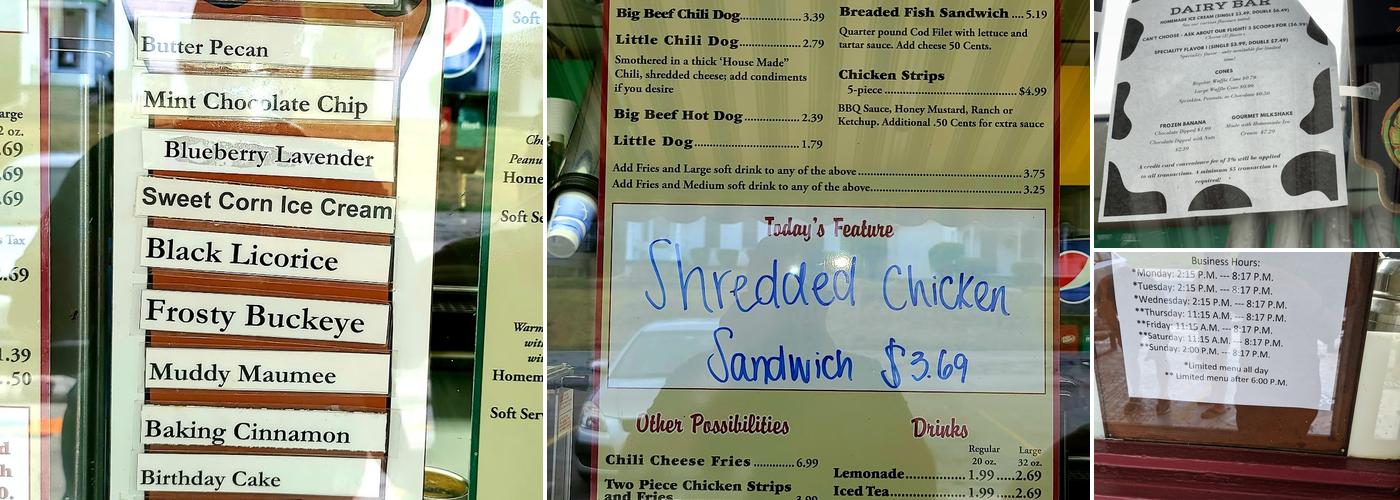 Butter Pecan
Mint Chocolate Chip
Blueberry Lavender
Sweet Corn Ice Cream
Black Licorice
Frosty Buckeye
Muddy Maumee
Baking Cinnamon
Birthday Cake
arge
2 oz.
.69
.69
.69
s Tax
.69
1.39
.50
d
h
0.
Soft
Cho
Peanu
Home
Soft Se
Warm
with
wit
Homem
Soft Serv
Big Beef Chili Dog 3.39
Little Chili Dog 2.79
Smothered in a thick 'House Made"
Chili, shredded cheese; add condiments
if you desire
Big Beef Hot Dog 2.39
Little Dog 1.79
Breaded Fish Sandwich .... 5.19
Quarter pound Cod Filet with lettuce and
tartar sauce. Add cheese 50 Cents.
Chicken Strips
5-piece $4.99
BBQ Sauce, Honey Mustard, Ranch or
Ketchup. Additional .50 Cents for extra sauce
Add Fries and Large soft drink to any of the above 3.75
Add Fries and Medium soft drink to any of the above 3.25
Today's Feature
Shredded Chicken
Sandwich $3.69
Other Possibilities
Chili Cheese Fries 6.99
Two Piece Chicken Strips
and Fries
Drinks
Regular Large
20 oz. 32 oz.
Lemonade 1.99 2.69
Iced Tea 1.99 2.69
DAIRY BAR
HOMEMADE ICE CREAM (SINGLE $3.49, DOUBLE $6.49)
CAN'T CHOOSE - ASK ABOUT OUR FLIGHT! 3 SCOOPS FOR ($6.99)
SPECIALITY FLAVOR ! (SINGLE $3.99, DOUBLE $7.49)
Speciality flavor - only available for limited
time!
CONES
Regular Waffle Cone $0.79
Large Waffle Cone $0.99
Sprinkles, Peanuts, or Chocolate $0.50
FROZEN BANANA
Chocolate Dipped $1.99
Chocolate Dipped with Nuts
$2.39
GOURMET MILKSHAKE
Made with Homemade Ice
Cream $7.29
A credit card convenience fee of 3% will be applied
to all transactions. A minimum $5 transaction is
required!
Business Hours:
*Monday: 2:15 P.M. --- 8:17 P.M.
*Tuesday: 2:15 P.M. --- 8:17 P.M.
*Wednesday: 2:15 P.M. --- 8:17 P.M.
**Thursday: 11:15 A.M. --- 8:17 P.M.
**Friday: 11:15 A.M. --- 8:17 P.M.
**Saturday: 11:15 A.M. --- 8:17 P.M.
**Sunday: 2:00 P.M. --- 8:17 P.M.
*Limited menu all day
** Limited menu after 6:00 P.M.